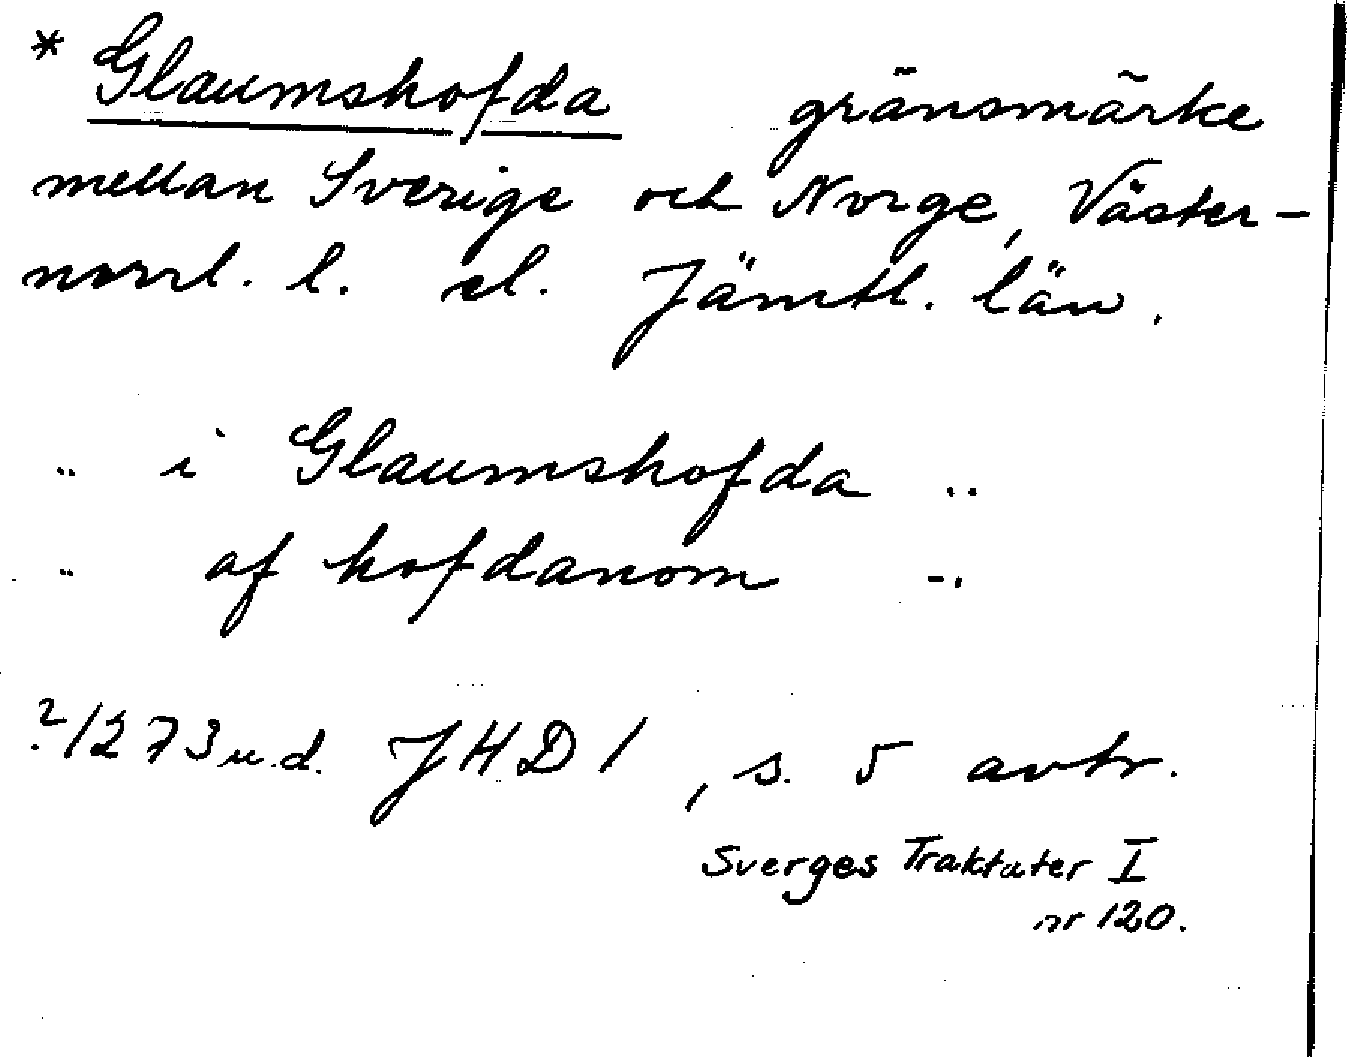 * Glaumshofda gränsmärke
mellan Sverige och Norge, Väster-
norrl. l. el. Jämtl. län.
.. i Glaumshofda ..
.. af hofdanom ..
? 1273 u.d. JHD 1, s. 5 avtr.
Sverges Traktater I
nr 120.